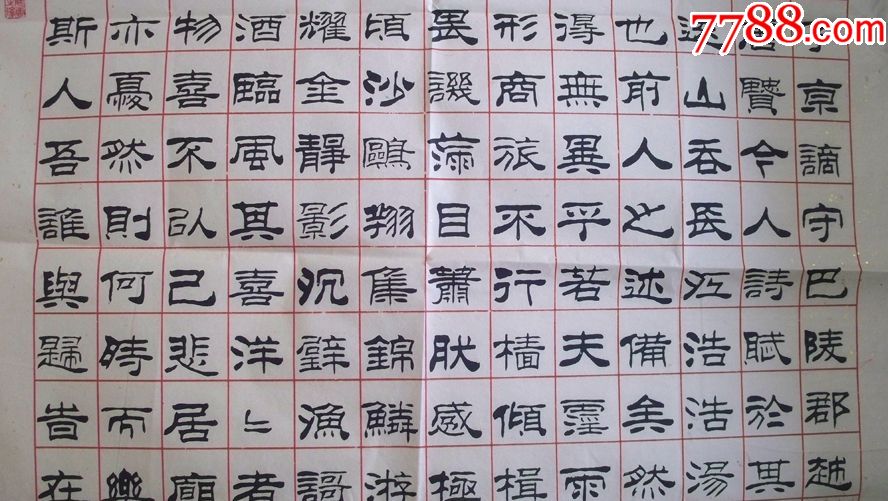 7788.com
京謫守巴陵郡越
賢今人詩賦於其
遠山吞長江浩浩湯
也前人之述備矣然
得無異乎若夫霪雨
形商旅不行檣傾楫
畏譏滿目蕭肰感極
頃沙鷗翔集錦鱗游
耀金靜影沉璧漁謌
酒臨風其喜洋〻者
物喜不以己悲居廟
亦憂然則何時而樂
斯人吾誰與歸旹在